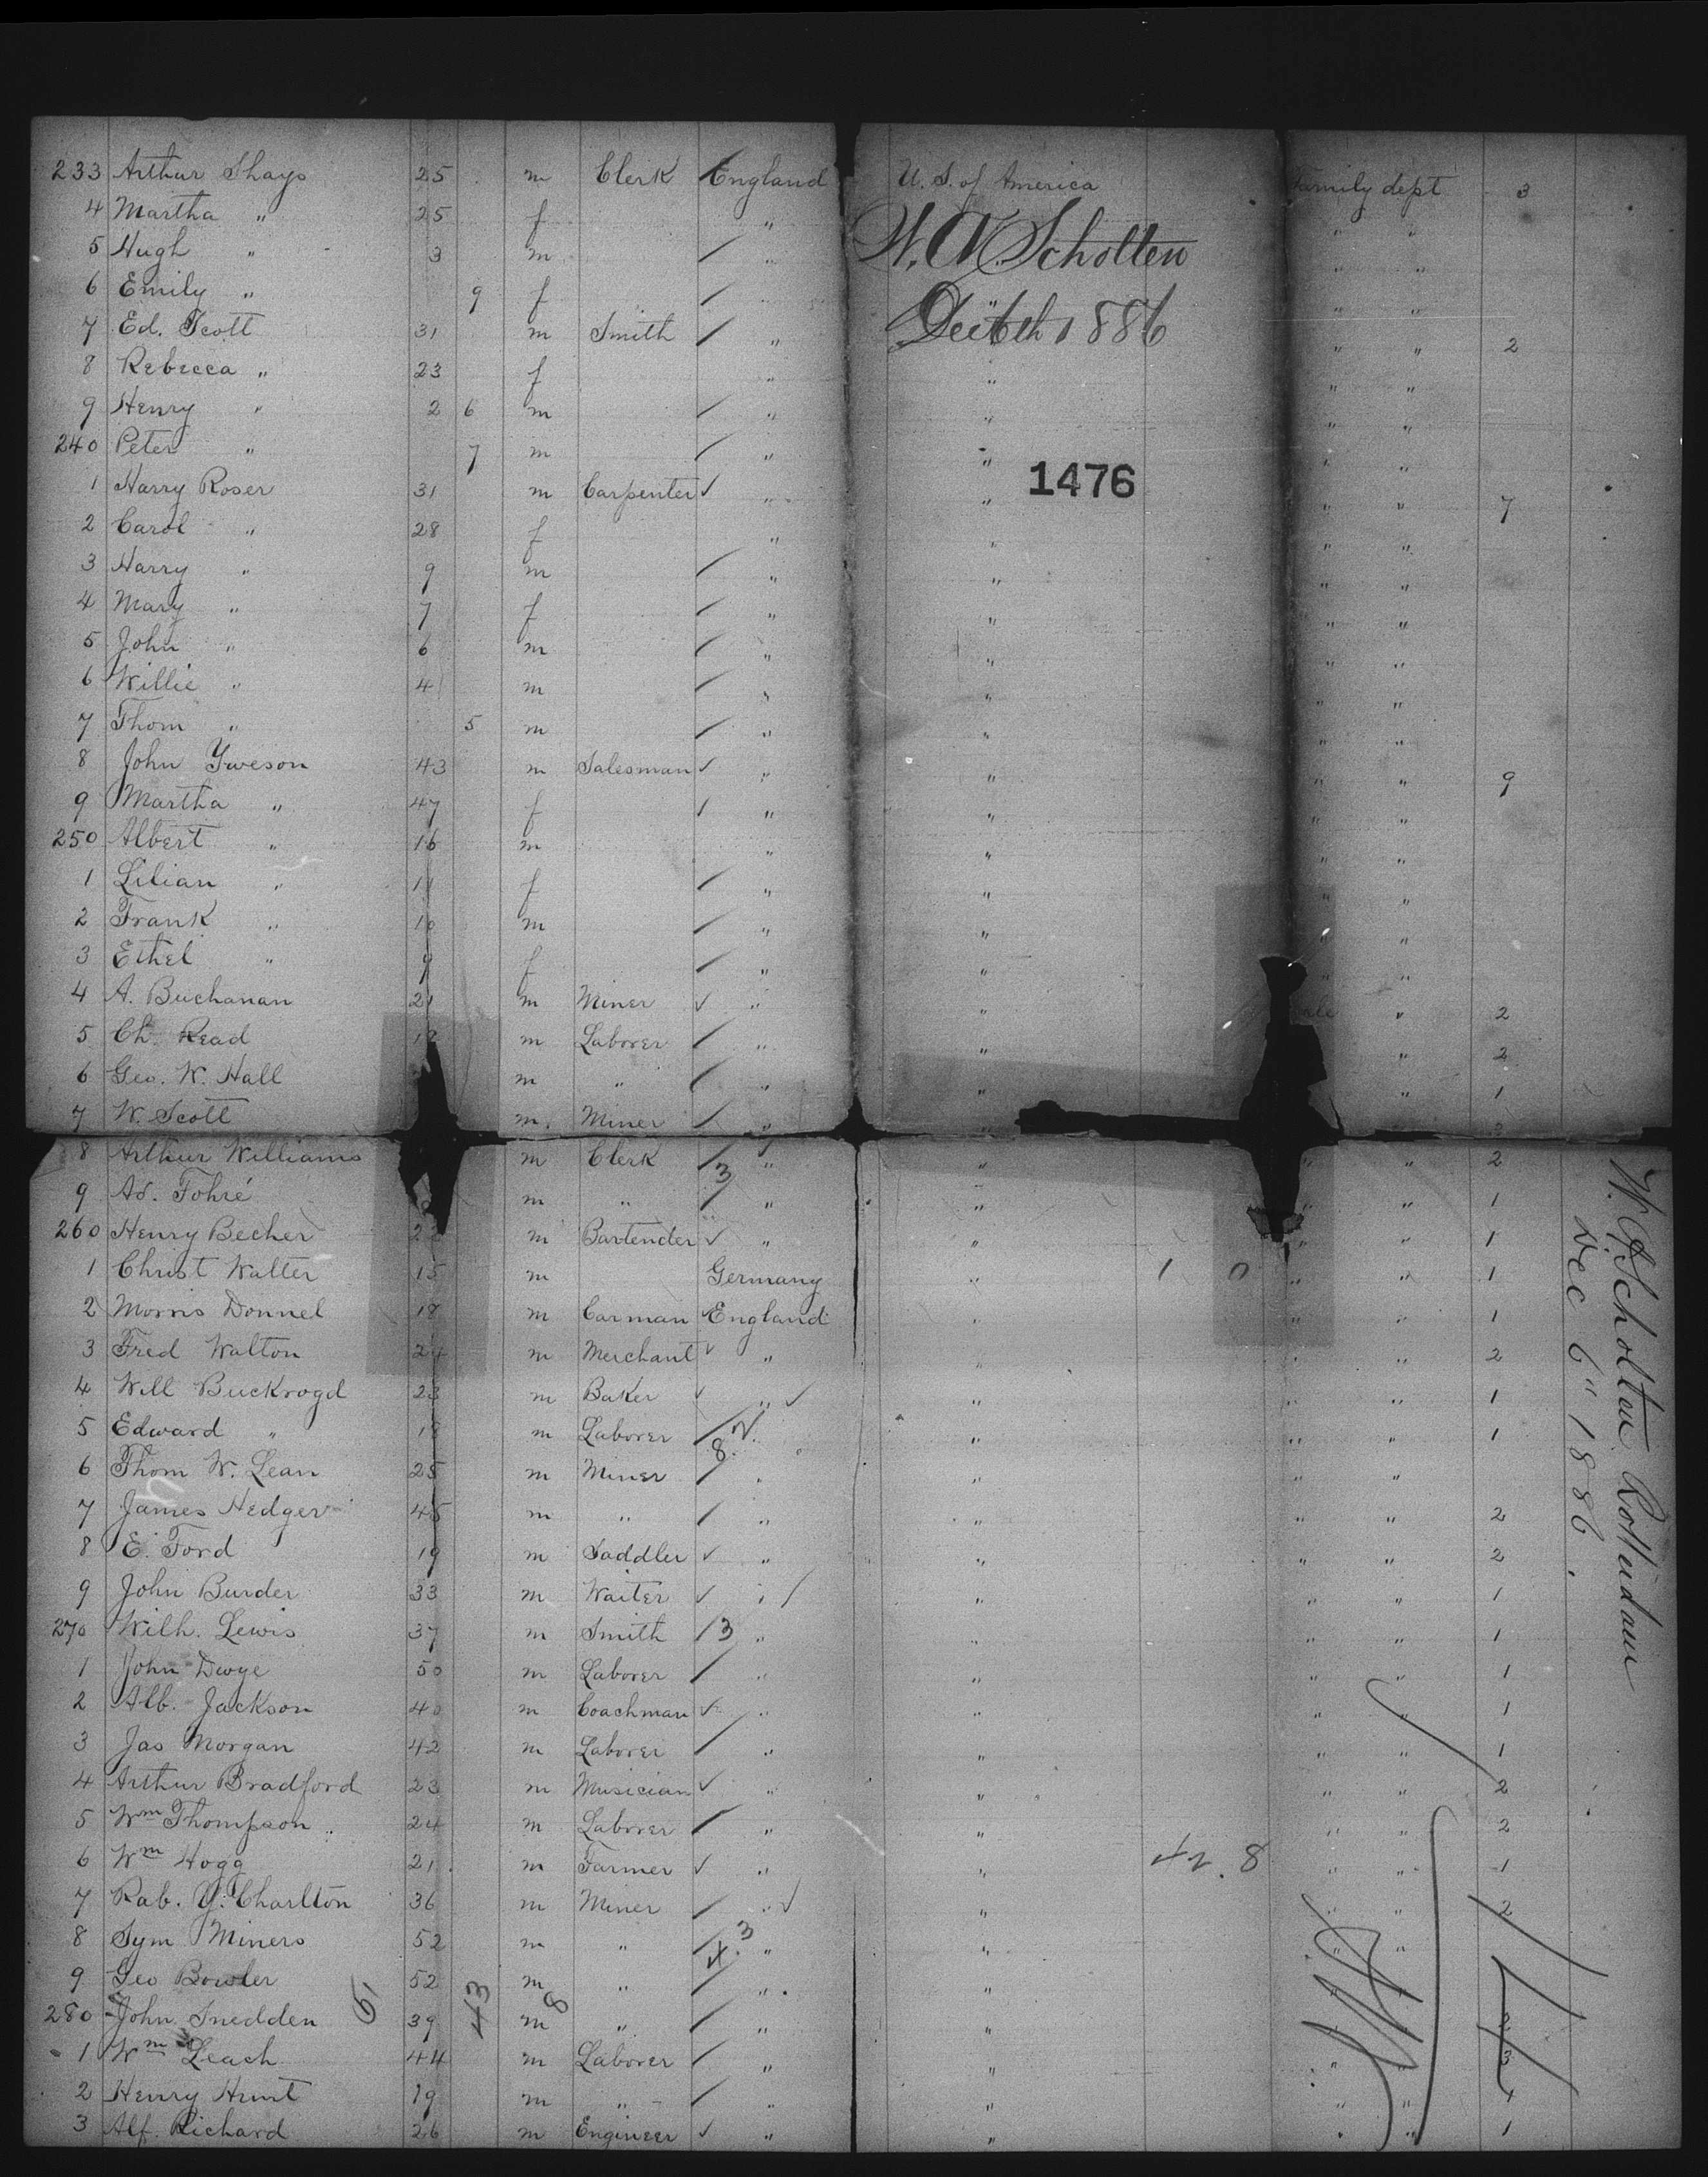 233 Arthur Shays 25 m Clerk England U. S. of America family dept 3
4 Martha " 25 f " " "
W. A. Scholten
5 Hugh " 3 m " " "
6 Emily " 9 f " "
Dec 6th 1886
7 Ed. Scott 31 m Smith " " " 2
8 Rebecca " 23 f " " " "
9 Henry " 2 6 m " " " "
240 Peter " 7 m " " " "
1476
1 Harry Roser 31 m Carpenter " " " " 7
2 Carol " 28 f " " " "
3 Harry " 9 m " " " "
4 Mary " 7 f " " " "
5 John " 6 m " " " "
6 Willie " 4 m " " " "
7 Thom " 5 m " " " "
8 John Yweson 43 m Salesman " " " " 9
9 Martha " 47 f " " " "
250 Albert " 16 m " " " "
1 Lilian " 11 f " " "
2 Frank " 10 m " " " "
3 Ethel " 9 f " " " "
4 A. Buchanan 21 m Miner " " " 2
5 Ch. Read m Laborer " " " 2
6 Geo. W. Hall m " " " " 1
7 W. Scott m. Miner " "
8 Arthur Williams m Clerk " " " " 2
3
9 Ad. Fohré m " " " " " 1
260 Henry Becher m Bartender " " " " 1
1 Christ Walter 15 m Germany " 1 0 " " 1
2 Morris Donnel 18 m Carman England " " " 1
3 Fred Walton 24 m Merchant " " " " 2
4 Will Buckrogd 23 m Baker " " " " 1
5 Edward " 18 m Laborer " " " 1
8
6 Thom W. Lean 25 m Miner " " "
7 James Hedger 45 m " " " " " 2
8 E. Ford 19 m Saddler " " " " 2
9 John Burder 33 m Waiter " " " " 1
270 Wilh. Lewis 37 m Smith 3 " " " " 1
1 John Dwye 50 m Laborer " " " " 1
2 Alb. Jackson 40 m Coachman " " " " 1
3 Jas Morgan 42 m Laborer " " " " 1
4 Arthur Bradford 23 m Musician " " " " 2
5 Wm Thompson 24 m Laborer " " " " 2
6 Wm Hogg 21 m Farmer " " 42.8 " " 1
7 Rab. Y. Charlton 36 m Miner " " " " 2
8 Sym Miners 52 m " " " " "
4.3
9 Geo Bowler 52 m " " " "
280 John Snedden 39 m " " "
1 Wm Leach 44 m Laborer " " " " 3
2 Henry Hunt 19 m " " " " "
3 Alf. Richard 26 m Engineer " " " " 1
43
8
W. A. Scholten Rotterdam
Dec 6" 1886.